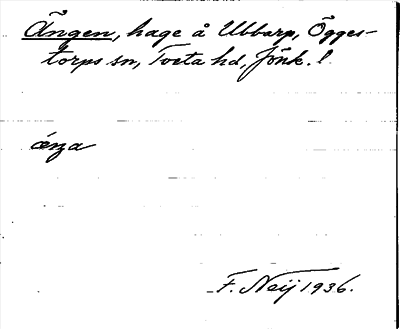 Ängen, hage å Ubbarp, Ögges-
torps sn, Tveta hd, Jönk. l.
æŋa
F. Neij 1936.